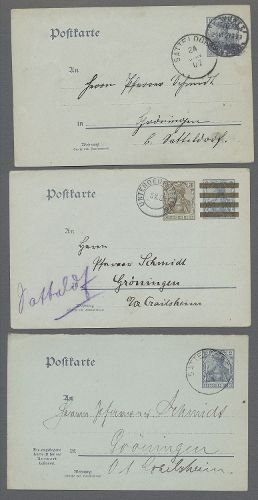 Postkarte
SATTELDORF
24
07
An
Herrn Pfarrer Schmidt
in Gröningen
b. Satteldorf.
Wohnung
Postkarte
An
Herrn
Pfarrer Schmidt
Gröningen
Satteldf
Crailsheim
Wohnung
Postkarte
SATTELDORF
An
Herrn Pfarrer Schmidt
in Gröningen
O.A. Crailsheim
Wohnung